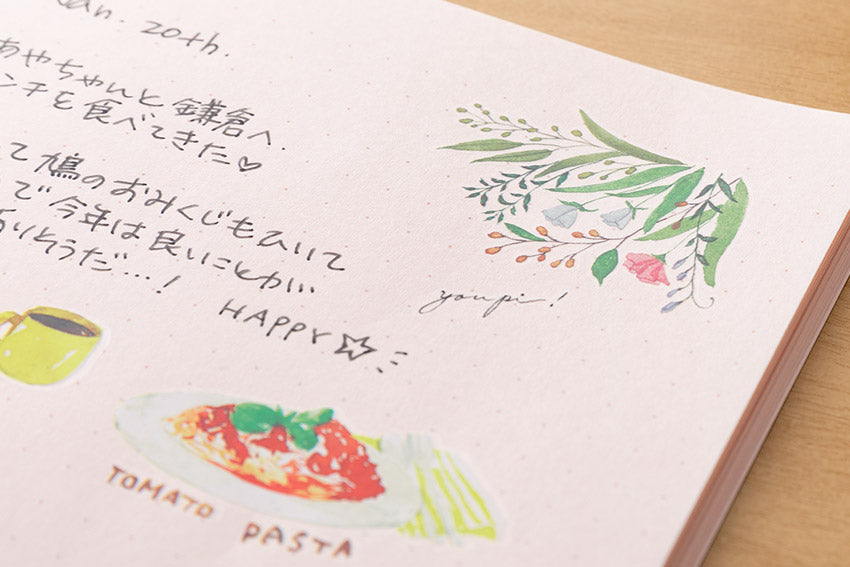 Jan. 20th.
あやちゃんと鎌倉へ.
ンチを食べてきた♡
て鳩のおみくじもひいて
で今年は良いことがい
ありそうだ…!
HAPPY☆
youpi!
TOMATO PASTA